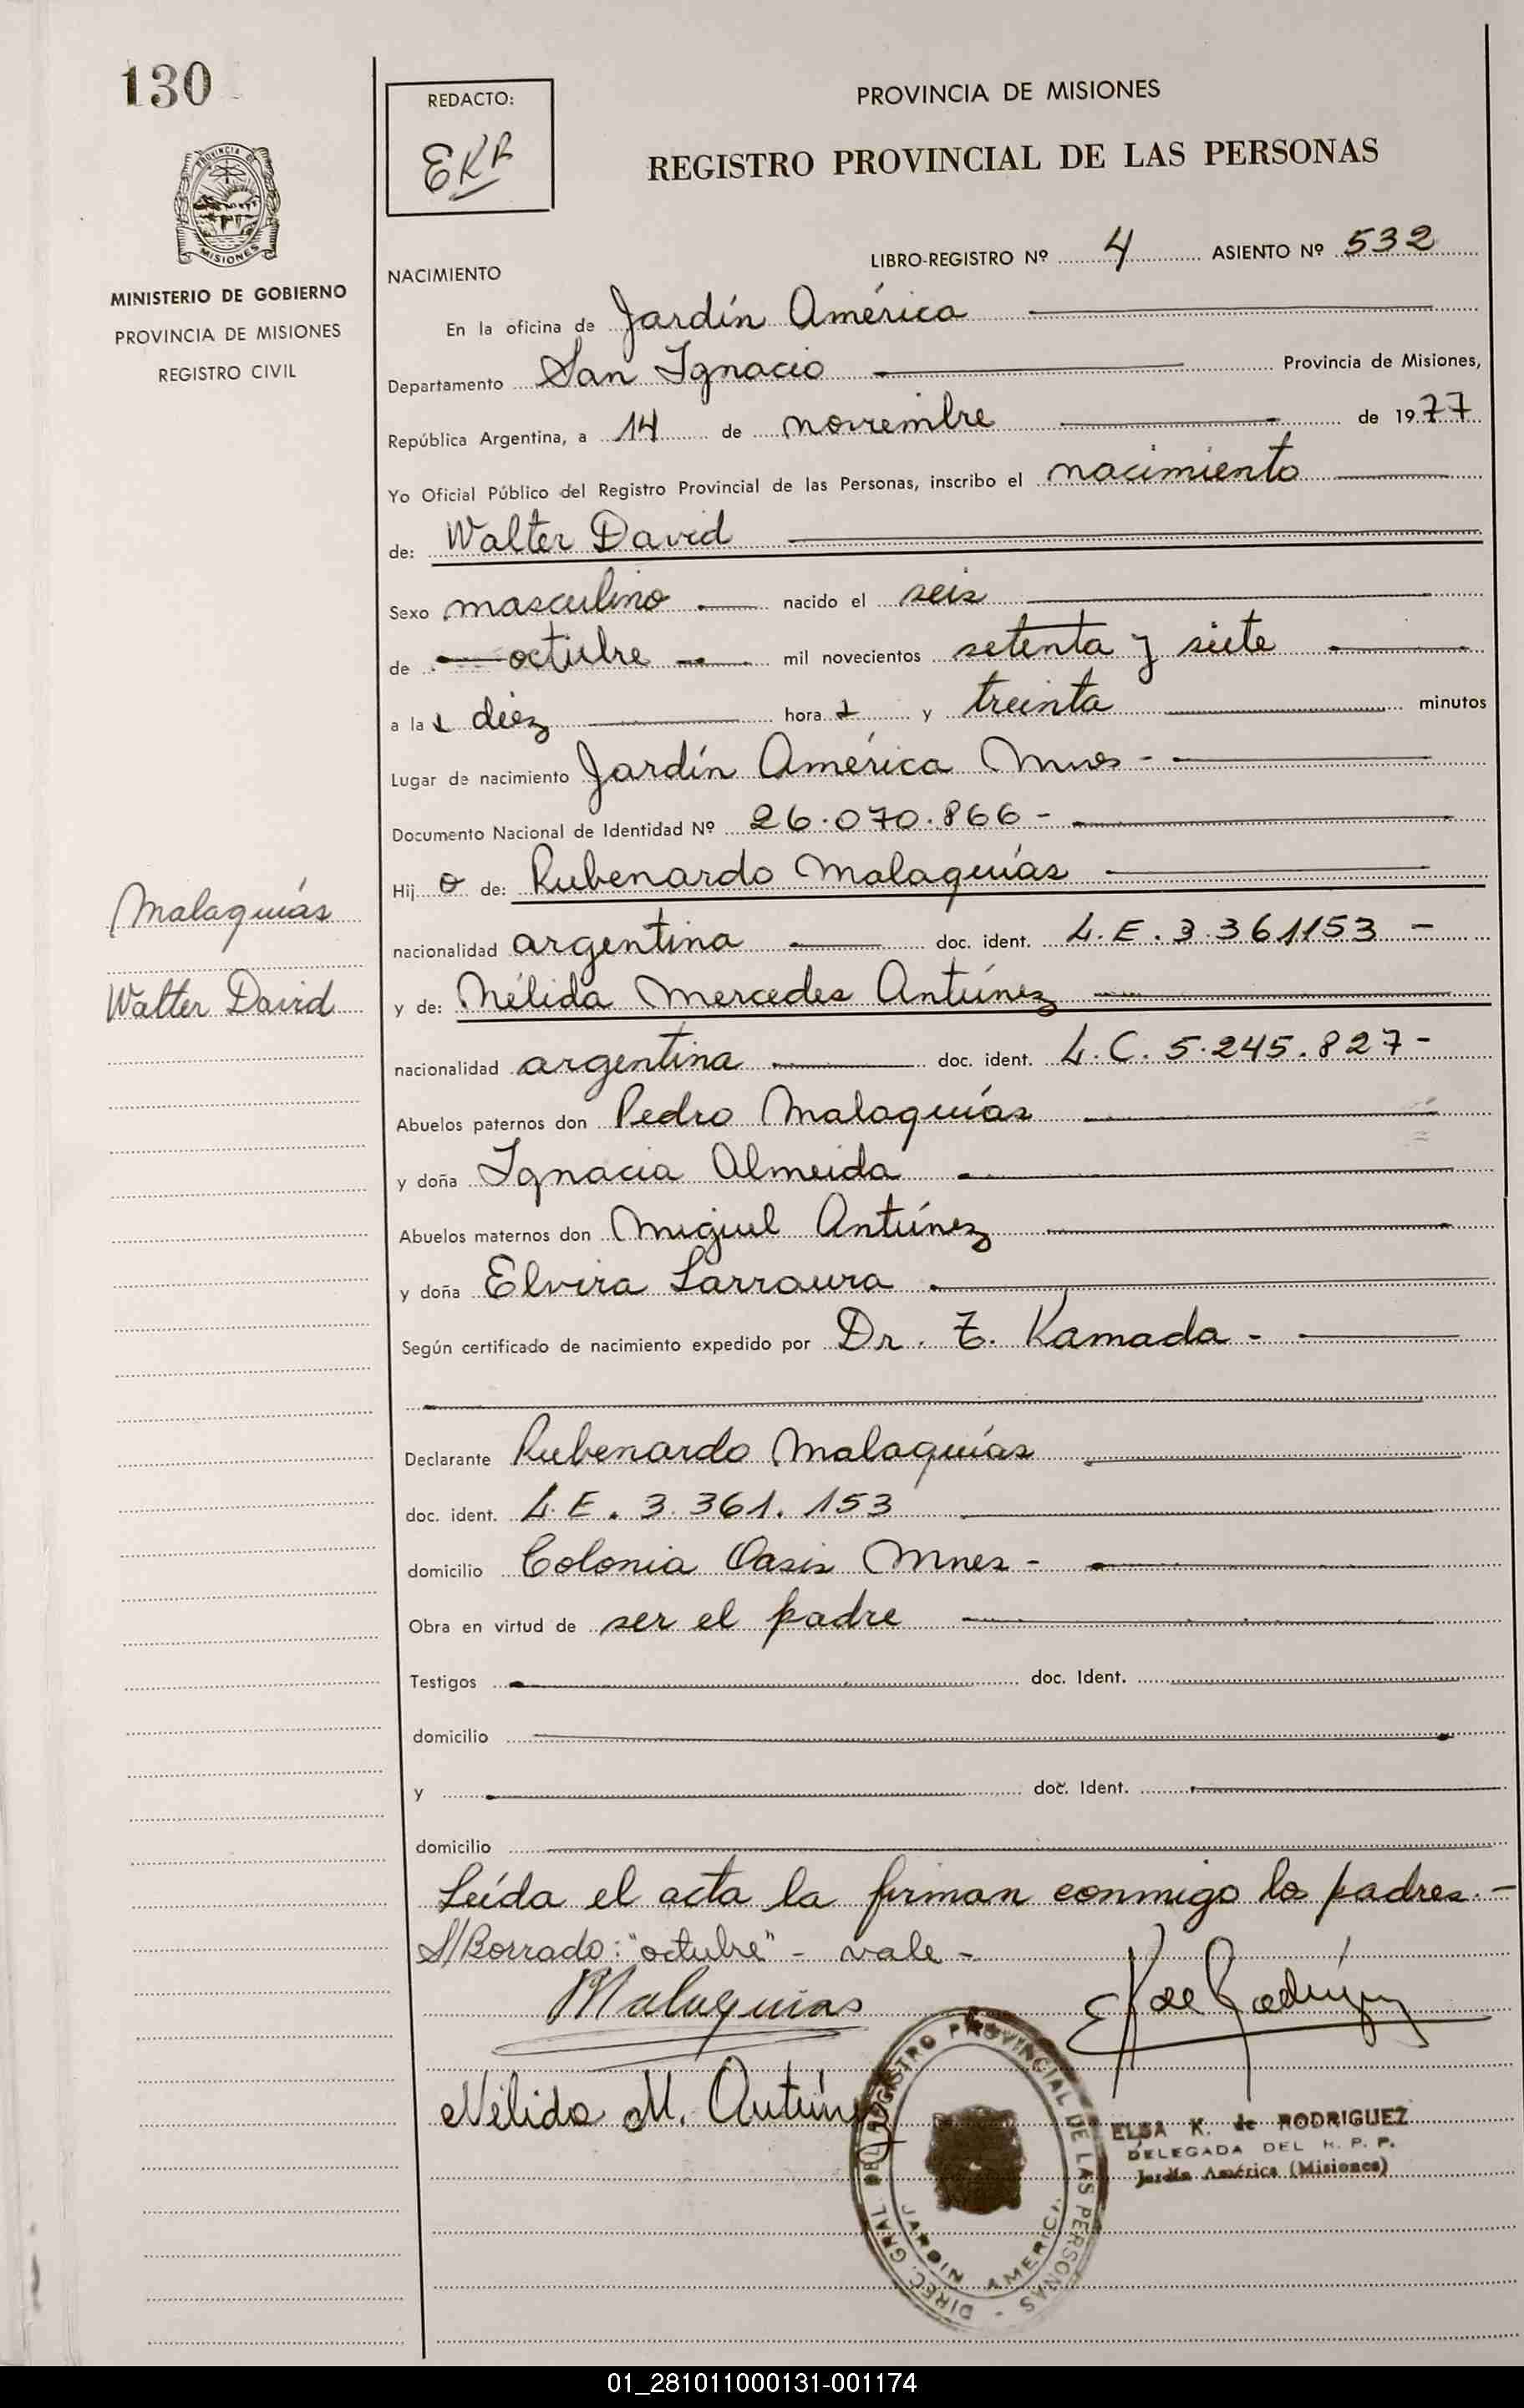 130
PROVINCIA DE
MISIONES
MINISTERIO DE GOBIERNO
PROVINCIA DE MISIONES
REGISTRO CIVIL
REDACTO:
EKR
PROVINCIA DE MISIONES
REGISTRO PROVINCIAL DE LAS PERSONAS
NACIMIENTO
LIBRO-REGISTRO Nº 4 ASIENTO Nº 532
En la oficina de Jardín América
Departamento San Ignacio Provincia de Misiones,
República Argentina, a 14 de noviembre de 1977
Yo Oficial Público del Registro Provincial de las Personas, inscribo el nacimiento
de: Walter David
Sexo masculino nacido el seis
de octubre mil novecientos setenta y siete
a las diez horas y treinta minutos
Lugar de nacimiento Jardín América Mnes -
Documento Nacional de Identidad Nº 26.070.866 -
Hijo de: Rubenardo Malaquías
Malaquías
nacionalidad argentina doc. ident. L.E. 3.361153 -
Walter David
y de: Nélida Mercedes Antúnez
nacionalidad argentina doc. ident. L.C. 5.245.827 -
Abuelos paternos don Pedro Malaquías
y doña Ignacia Almeida
Abuelos maternos don Miguel Antúnez
y doña Elvira Larraura
Según certificado de nacimiento expedido por Dr. Z. Kamada -
Declarante Rubenardo Malaquías
doc. ident. L.E. 3.361.153
domicilio Colonia Oasis Mnes -
Obra en virtud de ser el padre
Testigos doc. Ident.
domicilio
y doc. Ident.
domicilio
Leída el acta la firman conmigo los padres. -
S/Borrado: "octubre" - vale -
Malaquias
EK de Rodríguez
Nélida M. Antúnez
DIREC. GRAL. DEL REGISTRO PROVINCIAL DE LAS PERSONAS -
JARDIN AMERICA
ELSA K. de RODRIGUEZ
DELEGADA DEL R. P. P.
Jardín América (Misiones)
01_281011000131-001174